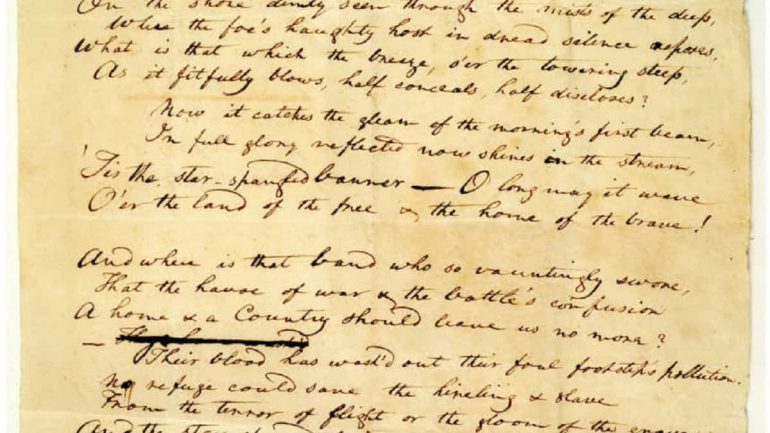 On the shore dimly seen through the mists of the deep,
Where the foe's haughty host in dread silence reposes,
What is that which the breeze, o'er the towering steep,
As it fitfully blows, half conceals, half discloses?
Now it catches the gleam of the morning's first beam,
In full glory reflected now shines in the stream,
'Tis the star-spangled banner — O long may it wave
O'er the land of the free & the home of the brave!
And where is that band who so vauntingly swore,
That the havoc of war & the battle's confusion
A home & a Country should leave us no more?
—
Their blood has wash'd out their foul footstep's pollution.
No refuge could save the hireling & slave
From the terror of flight or the gloom of the grave
And the